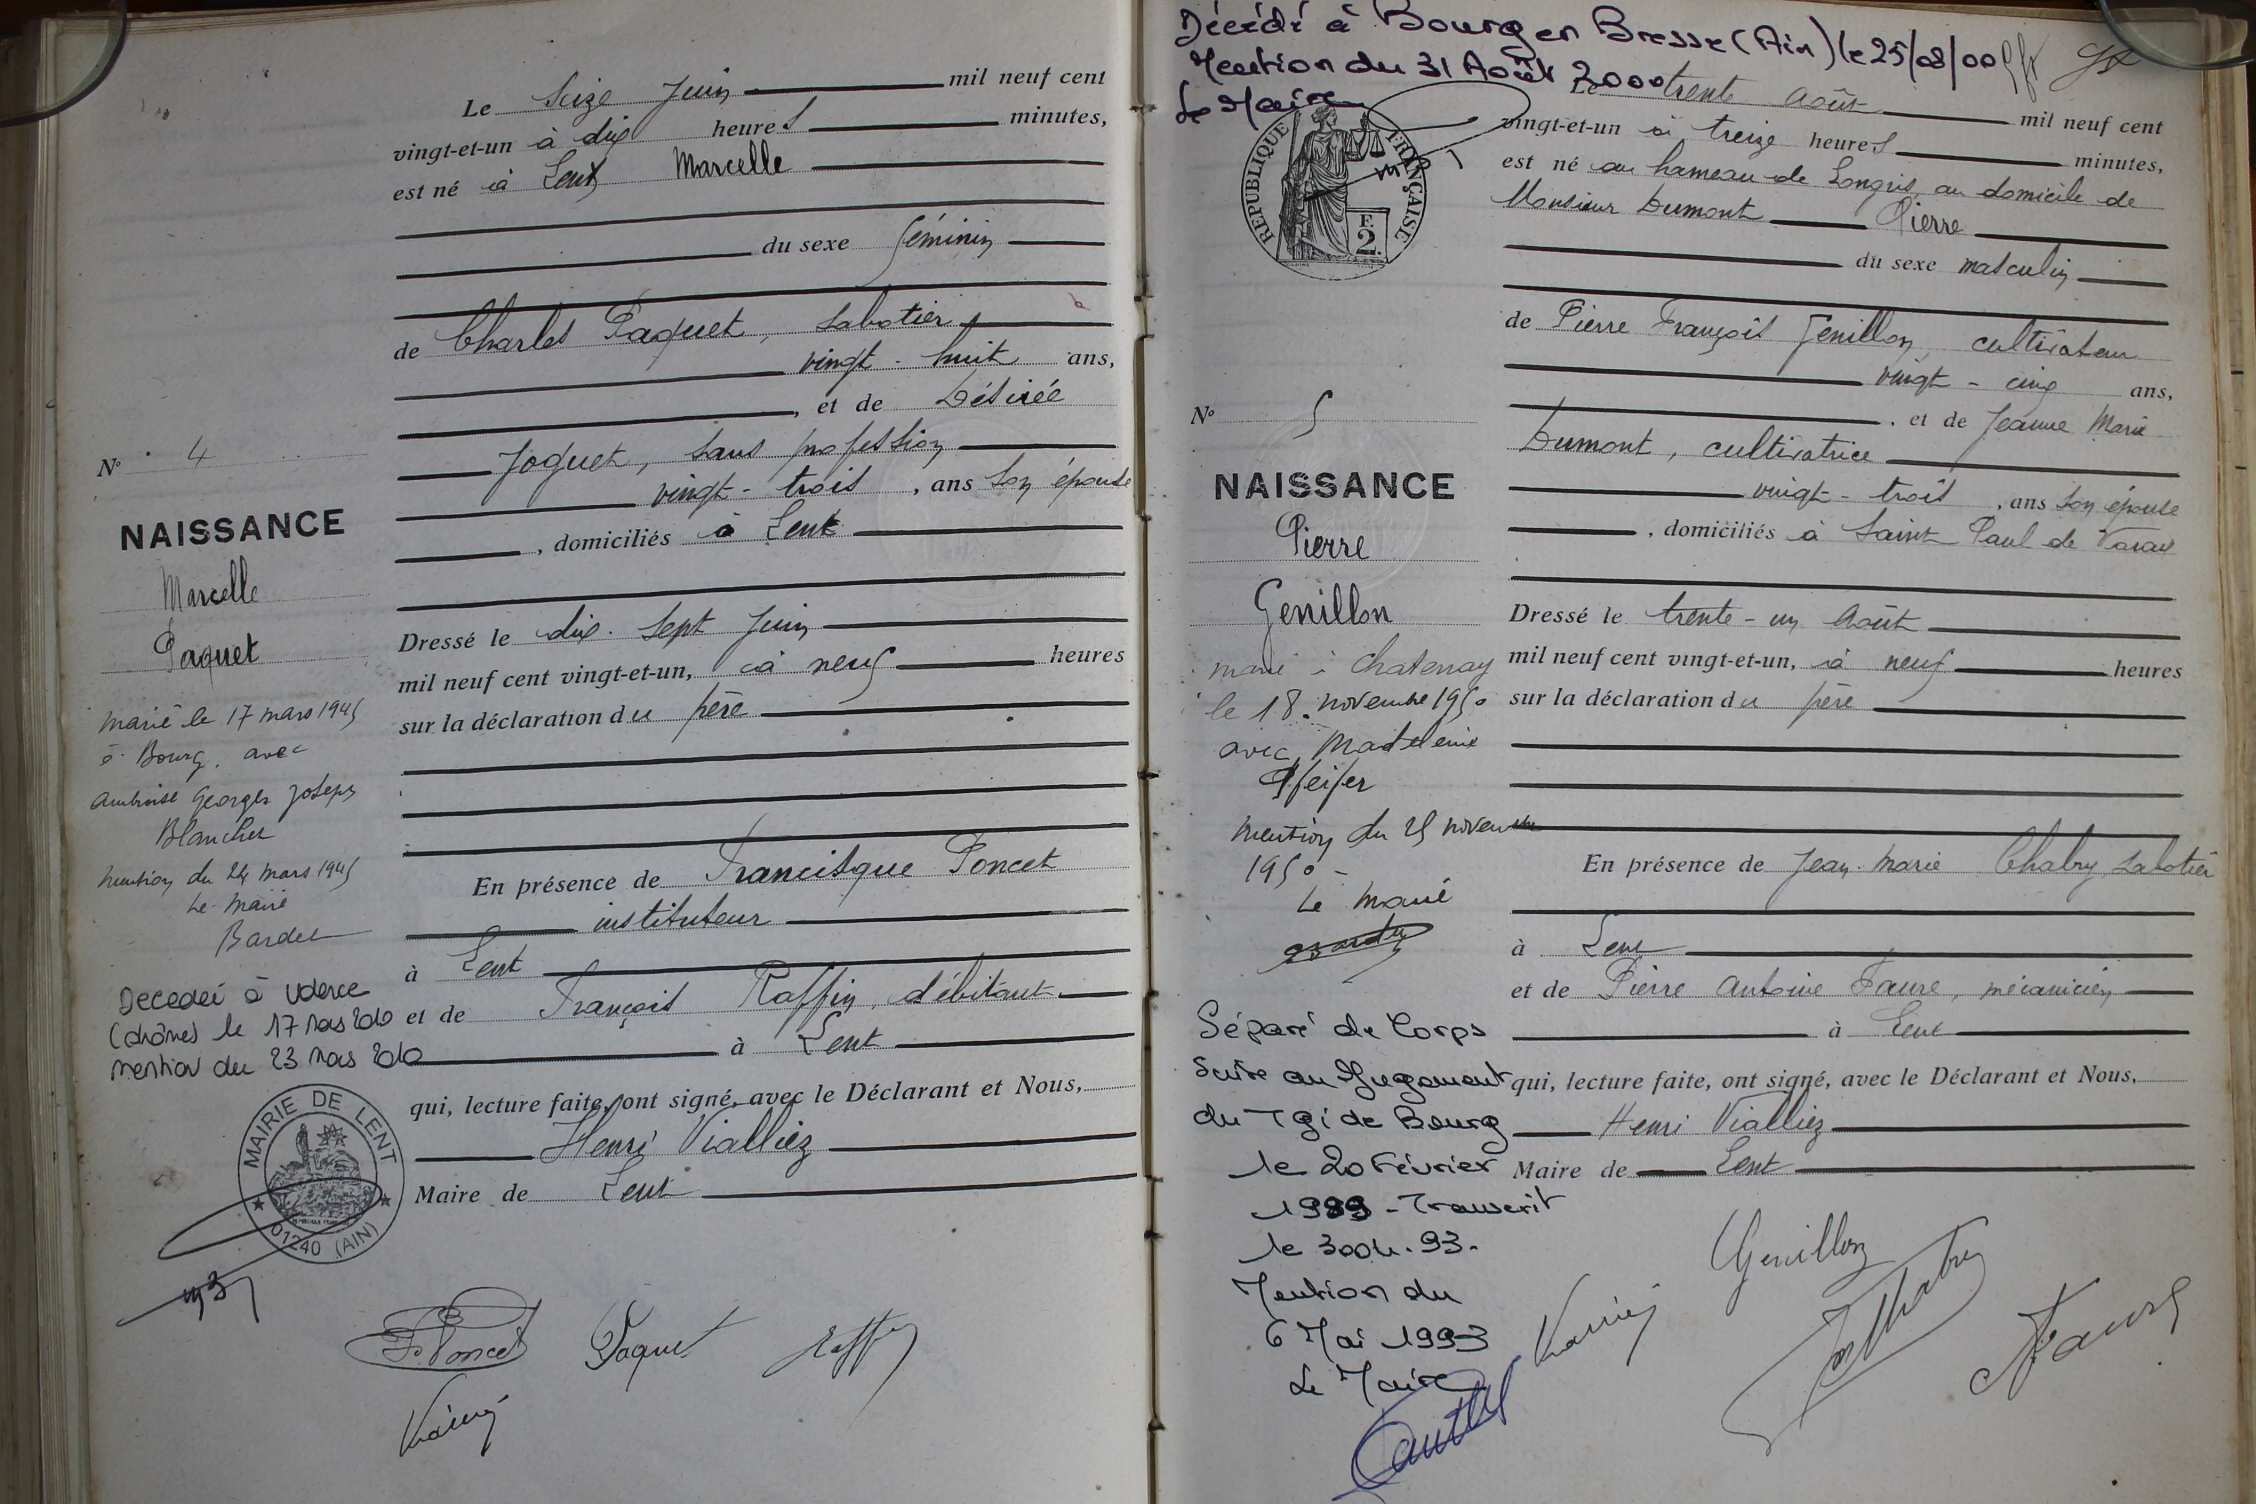 Le seize Juin mil neuf cent
vingt-et-un à dix heures minutes,
est né à Lent Marcelle
du sexe féminin
de Charles Paquet, sabotier
vingt-huit ans,
, et de Désirée
Joguet, sans profession
vingt-trois , ans son épouse
, domiciliés à Lent
Dressé le dix-sept Juin
mil neuf cent vingt-et-un, à neuf heures
sur la déclaration du père
En présence de Francisque Poncet
instituteur
à Lent
et de François Raffin, débitant
à Lent
qui, lecture faite, ont signé, avec le Déclarant et Nous,
Henri Vialliez
Maire de Lent
N° 4
NAISSANCE
Marcelle
Paquet
marié le 17 mars 1945
à Bourg, avec
Ambroise Georges Joseph
Blanchet
mention du 24 mars 1945
Le Maire
Bardet
Décédée à Valence
(drôme) le 17 Mars 2010
mention du 23 Mars 2010
MAIRIE DE LENT
01240 (AIN)
F. Poncet Paquet Raffin
Décédé à Bourg en Bresse (Ain) le 25/08/00
Mention du 31 Août 2000
Le Maire
RÉPUBLIQUE FRANÇAISE
F.
2.
Le trente Août mil neuf cent
vingt-et-un à treize heures minutes,
est né au hameau de Longris, au domicile de
Monsieur Dumont Pierre
du sexe masculin
de Pierre François Genillon, cultivateur
vingt-cinq ans,
, et de Jeanne Marie
Dumont, cultivatrice
vingt-trois , ans son épouse
, domiciliés à Saint Paul de Varax
Dressé le trente-un Août
mil neuf cent vingt-et-un, à neuf heures
sur la déclaration du père
En présence de Jean-Marie Chabry, sabotier
à Lent
et de Pierre Antoine Faure, mécanicien
à Lent
qui, lecture faite, ont signé, avec le Déclarant et Nous,
Henri Vialliez
Maire de Lent
N° 5
NAISSANCE
Pierre
Genillon
marié à Chatenay
le 18 novembre 1950
avec Madeleine
Pfeifer
mention du 25 novembre
1950
Le maire
Bardet
Séparé de Corps
suite au Jugement
du TGI de Bourg
le 20 Février
1989 - Transcrit
le 30 04. 93.
Mention du
6 Mai 1993
Le Maire
Genillon
JM Chabry
Faure